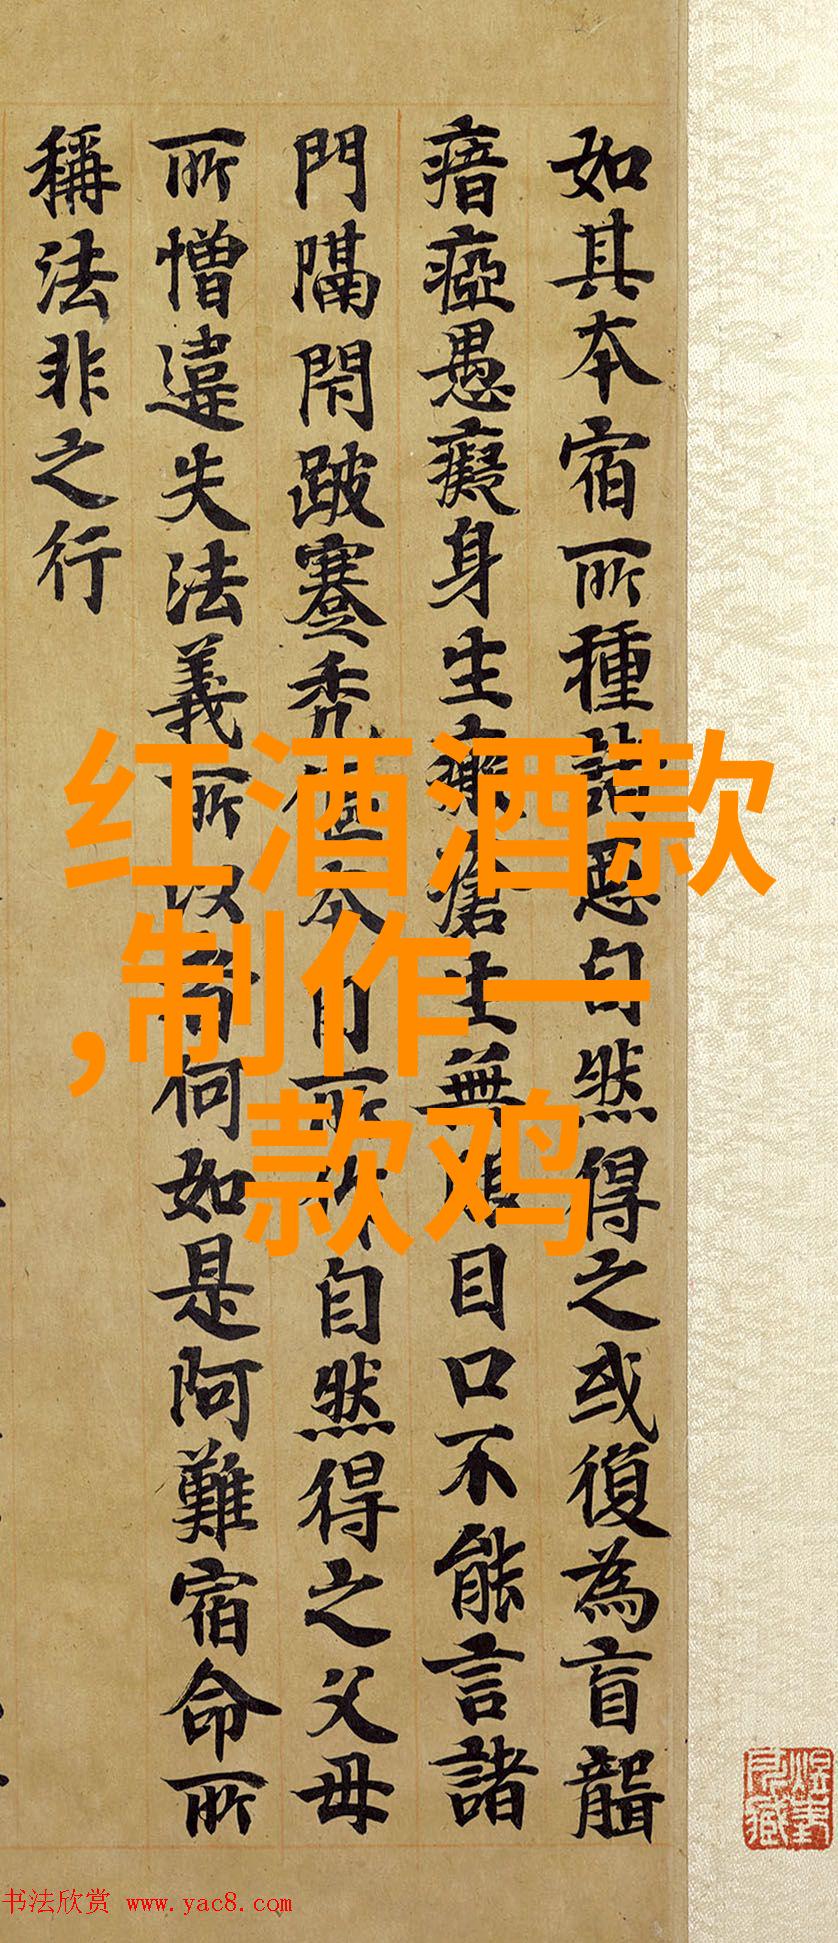 如其本宿所種諸惡自然得之或復為盲聾
瘖瘂愚癡身生瘡生無目口不能言諸
門隔閇跛蹇禿本自所作自然得之父母
所憎違失法義所以者何如是阿難宿命所
稱法非之行
红酒酒款
,制作一
款鸡
书法欣赏 www.yac8.com